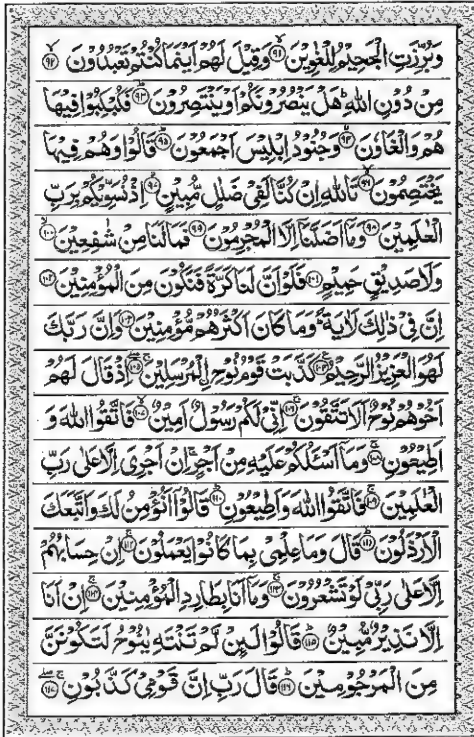 وَبُرِّزَتِ الْجَحِيْمُ لِلْغٰوِيْنَ ﴿٩١﴾ وَقِيْلَ لَهُمْ اَيْنَمَا كُنْتُمْ تَعْبُدُوْنَ ﴿٩٢﴾
مِنْ دُوْنِ اللّٰهِ ؕ هَلْ يَنْصُرُوْنَكُمْ اَوْ يَنْتَصِرُوْنَ ﴿٩٣﴾ فَكُبْكِبُوْا فِيْهَا
هُمْ وَالْغَاوٗنَ ﴿٩٤﴾ وَجُنُوْدُ اِبْلِيْسَ اَجْمَعُوْنَ ﴿٩٥﴾ قَالُوْا وَهُمْ فِيْهَا
يَخْتَصِمُوْنَ ﴿٩٦﴾ تَاللّٰهِ اِنْ كُنَّا لَفِيْ ضَلٰلٍ مُّبِيْنٍ ﴿٩٧﴾ اِذْ نُسَوِّيْكُمْ بِرَبِّ
الْعٰلَمِيْنَ ﴿٩٨﴾ وَمَاۤ اَضَلَّنَاۤ اِلَّا الْمُجْرِمُوْنَ ﴿٩٩﴾ فَمَا لَنَا مِنْ شٰفِعِيْنَ ﴿١٠٠﴾
وَلَا صَدِيْقٍ حَمِيْمٍ ﴿١٠١﴾ فَلَوْ اَنَّ لَنَا كَرَّةً فَنَكُوْنَ مِنَ الْمُؤْمِنِيْنَ ﴿١٠٢﴾
اِنَّ فِيْ ذٰلِكَ لَاٰيَةً ؕ وَمَا كَانَ اَكْثَرُهُمْ مُّؤْمِنِيْنَ ﴿١٠٣﴾ وَاِنَّ رَبَّكَ
لَهُوَ الْعَزِيْزُ الرَّحِيْمُ ﴿١٠٤﴾ كَذَّبَتْ قَوْمُ نُوْحِ اِۨلْمُرْسَلِيْنَ ﴿١٠٥﴾ اِذْ قَالَ لَهُمْ
اَخُوْهُمْ نُوْحٌ اَلَا تَتَّقُوْنَ ﴿١٠٦﴾ اِنِّيْ لَكُمْ رَسُوْلٌ اَمِيْنٌ ﴿١٠٧﴾ فَاتَّقُوا اللّٰهَ وَ
اَطِيْعُوْنِ ﴿١٠٨﴾ وَمَاۤ اَسْـَٔلُكُمْ عَلَيْهِ مِنْ اَجْرٍ ۚ اِنْ اَجْرِيَ اِلَّا عَلٰى رَبِّ
الْعٰلَمِيْنَ ﴿١٠٩﴾ فَاتَّقُوا اللّٰهَ وَاَطِيْعُوْنِ ﴿١١٠﴾ قَالُوْۤا اَنُؤْمِنُ لَكَ وَاتَّبَعَكَ
الْاَرْذَلُوْنَ ﴿١١١﴾ قَالَ وَمَا عِلْمِيْ بِمَا كَانُوْا يَعْمَلُوْنَ ﴿١١٢﴾ اِنْ حِسَابُهُمْ
اِلَّا عَلٰى رَبِّيْ لَوْ تَشْعُرُوْنَ ﴿١١٣﴾ وَمَاۤ اَنَا بِطَارِدِ الْمُؤْمِنِيْنَ ﴿١١٤﴾ اِنْ اَنَا
اِلَّا نَذِيْرٌ مُّبِيْنٌ ﴿١١٥﴾ قَالُوْا لَىِٕنْ لَّمْ تَنْتَهِ يٰنُوْحُ لَتَكُوْنَنَّ
مِنَ الْمَرْجُوْمِيْنَ ﴿١١٦﴾ قَالَ رَبِّ اِنَّ قَوْمِيْ كَذَّبُوْنِ ﴿١١٧﴾